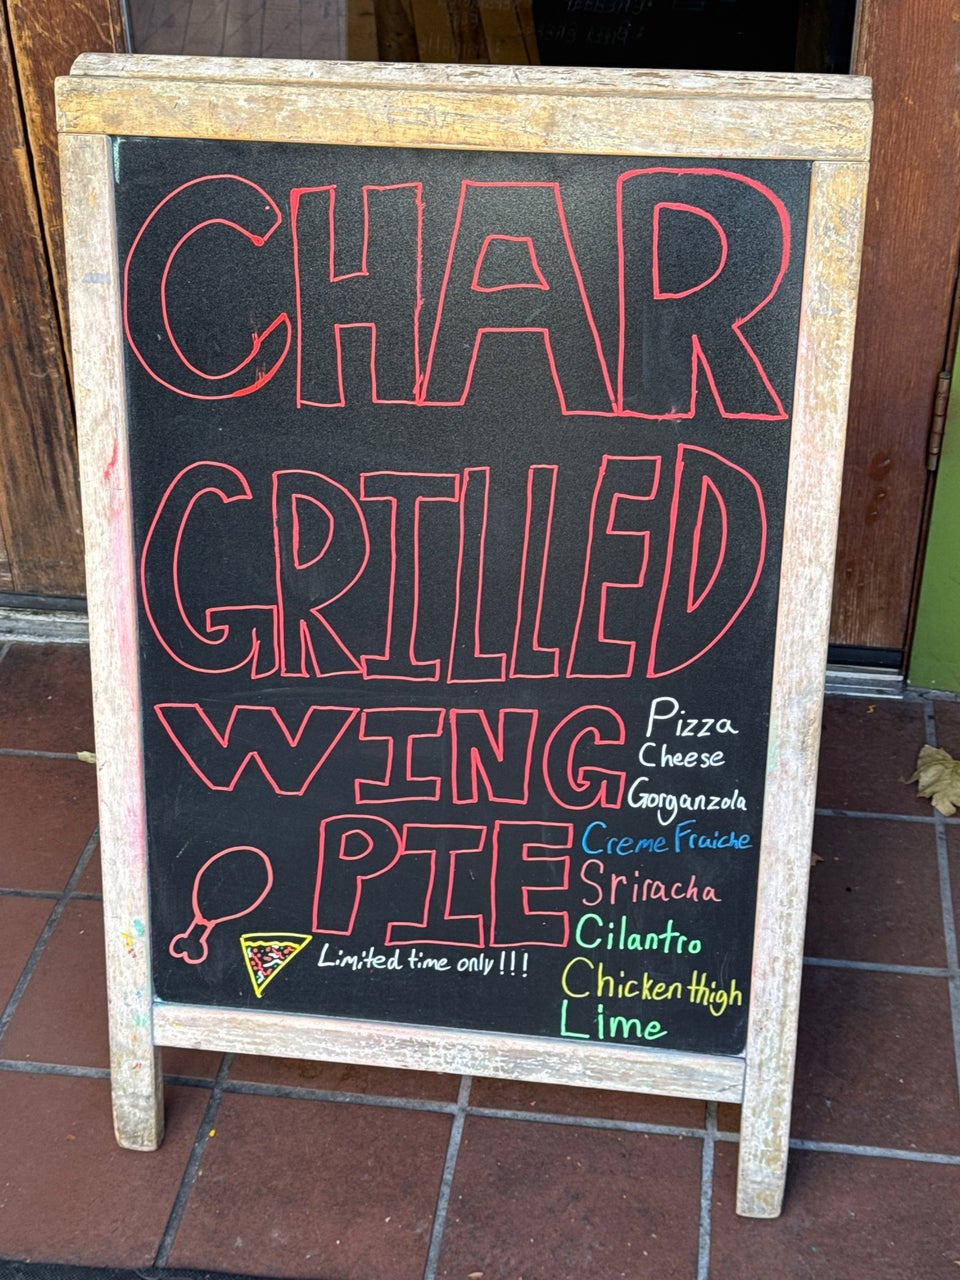 CHAR
GRILLED
WING
PIE
Limited time only!!!
Pizza
Cheese
Gorganzola
Creme Fraiche
Sriracha
Cilantro
Chicken thigh
Lime